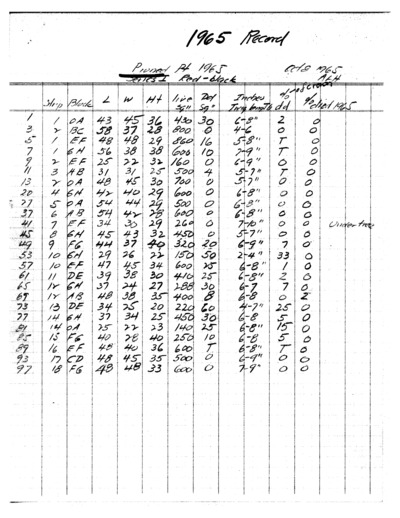 1965 Record
Pruned Pt 1965 Oct 1965
Series I Red-black
Strip Block L W Ht live Ded Inches
Sq" Sq" Twig length dd died 1965
1 1 OA 43 45 36 430 30 6-8" 2 0
3 2 BC 58 37 28 800 0 4-6 0 0
5 1 EF 48 48 29 860 16 5-8" T 0
7 1 GH 56 38 38 600 10 7-9" T 0
9 2 EF 25 22 32 160 0 6-9" 0 0
11 3 AB 31 31 25 500 4 5-7" T 0
13 2 OA 48 45 30 700 0 5-7" 0 0
20 4 GH 42 40 29 600 0 6-8" 0 0
27 5 OA 54 44 29 500 0 6-8" 0 0
37 6 AB 54 42 28 600 0 6-8" 0 0
41 7 EF 34 30 29 260 0 7-10" 0 0 Under tree
45 8 GH 45 43 32 450 0 5-7" 0 0
49 9 FG 44 37 40 320 20 6-9" 7 0
53 10 GH 29 26 22 150 50 2-4" 33 0
57 10 EF 47 45 34 600 25 6-8" 1 0
61 11 DE 39 38 30 410 25 6-8" 2 0
65 12 GH 37 24 27 288 30 6-7 7 0
69 12 AB 48 38 35 400 8 6-8 0 2
73 13 DE 34 25 20 220 60 4-7" 25 0
77 14 GH 37 34 25 450 30 6-8 5 0
81 14 OA 25 22 23 140 25 6-8" 15 0
85 15 FG 40 28 40 250 10 6-8 5 0
89 16 EF 48 40 36 600 T 6-8" T 0
93 17 CD 48 45 35 500 0 6-9" 0 0
97 18 FG 48 48 33 600 0 7-9" 0 0